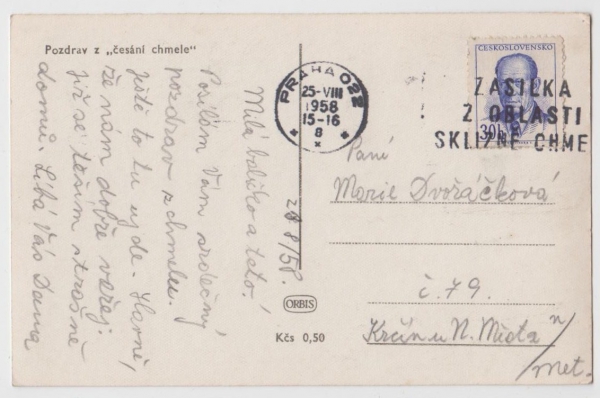 Pozdrav z „česání chmele"
Milá babičko a teto!
Posílám Vám srdečný
pozdrav z chmelu.
Ještě to tu ujde. Hlavně,
že nám dobře vařej.
již se těším strašně
domů. Líbá Vás Dana
28 8/58.
PRAHA 022
25-VIII
1958
15-16
8
ČESKOSLOVENSKO
30h
ZÁSILKA
Z OBLASTI
SKLIZNĚ CHME
Paní
Marie Dvořáčková
č. 79.
Krčín u N. Města n/
Met.
ORBIS
Kčs 0,50